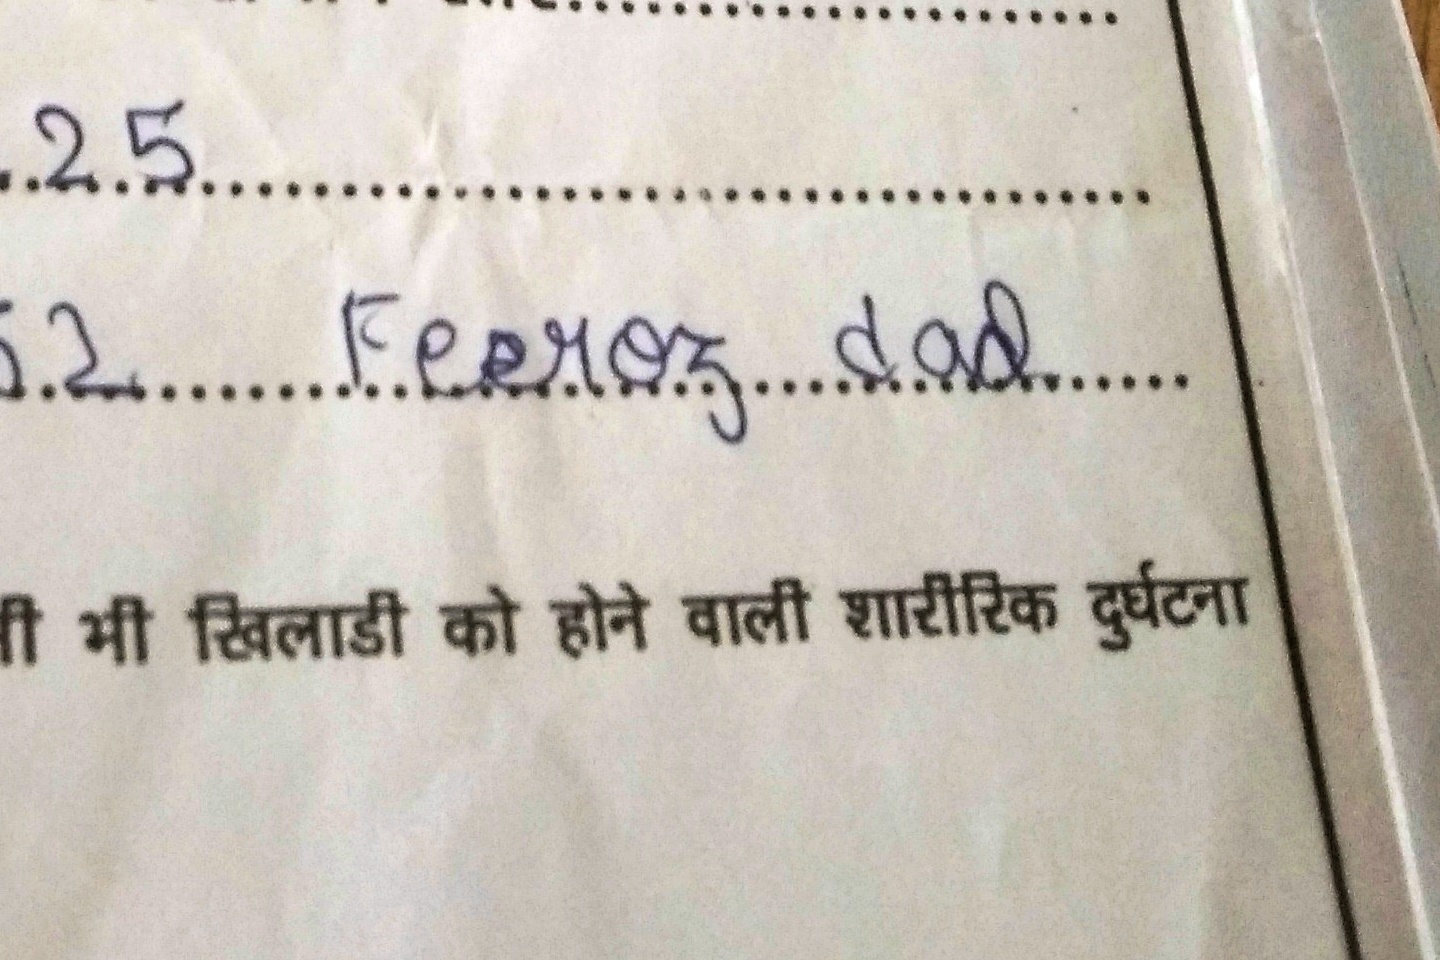 25
52 Feeroz dad
भी खिलाडी को होने वाली शारीरिक दुर्घटना